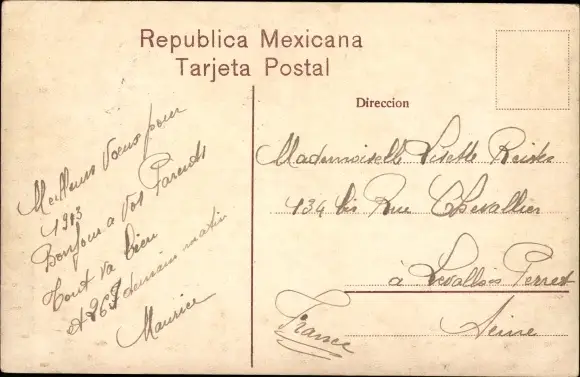 Republica Mexicana
Tarjeta Postal
Direccion
Meilleurs Voeux pour
1913
Bonjour a Vos Parents
tout va bien
et 265 demain matin
Maurice
Mademoiselle Lisette
134 bis Rue Chevallier
à Levallois Perret
Seine
France